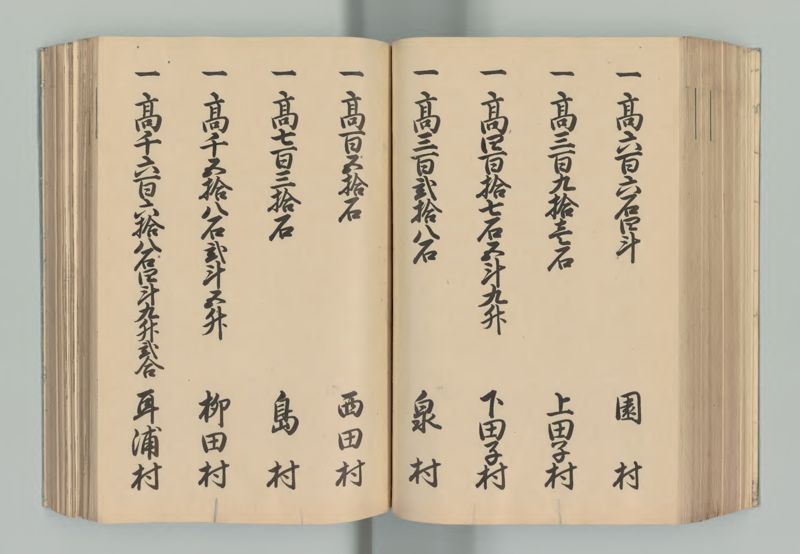 一高六百六石四斗 園村
一高三百九拾壱石 上田子村
一高四百拾七石五斗九升 下田子村
一高三百弐拾八石 泉村
一高百五拾石 西田村
一高七百三拾石 島村
一高千五拾八石弐斗五升 柳田村
一高千六百六拾八石四斗九升弐合 耳浦村